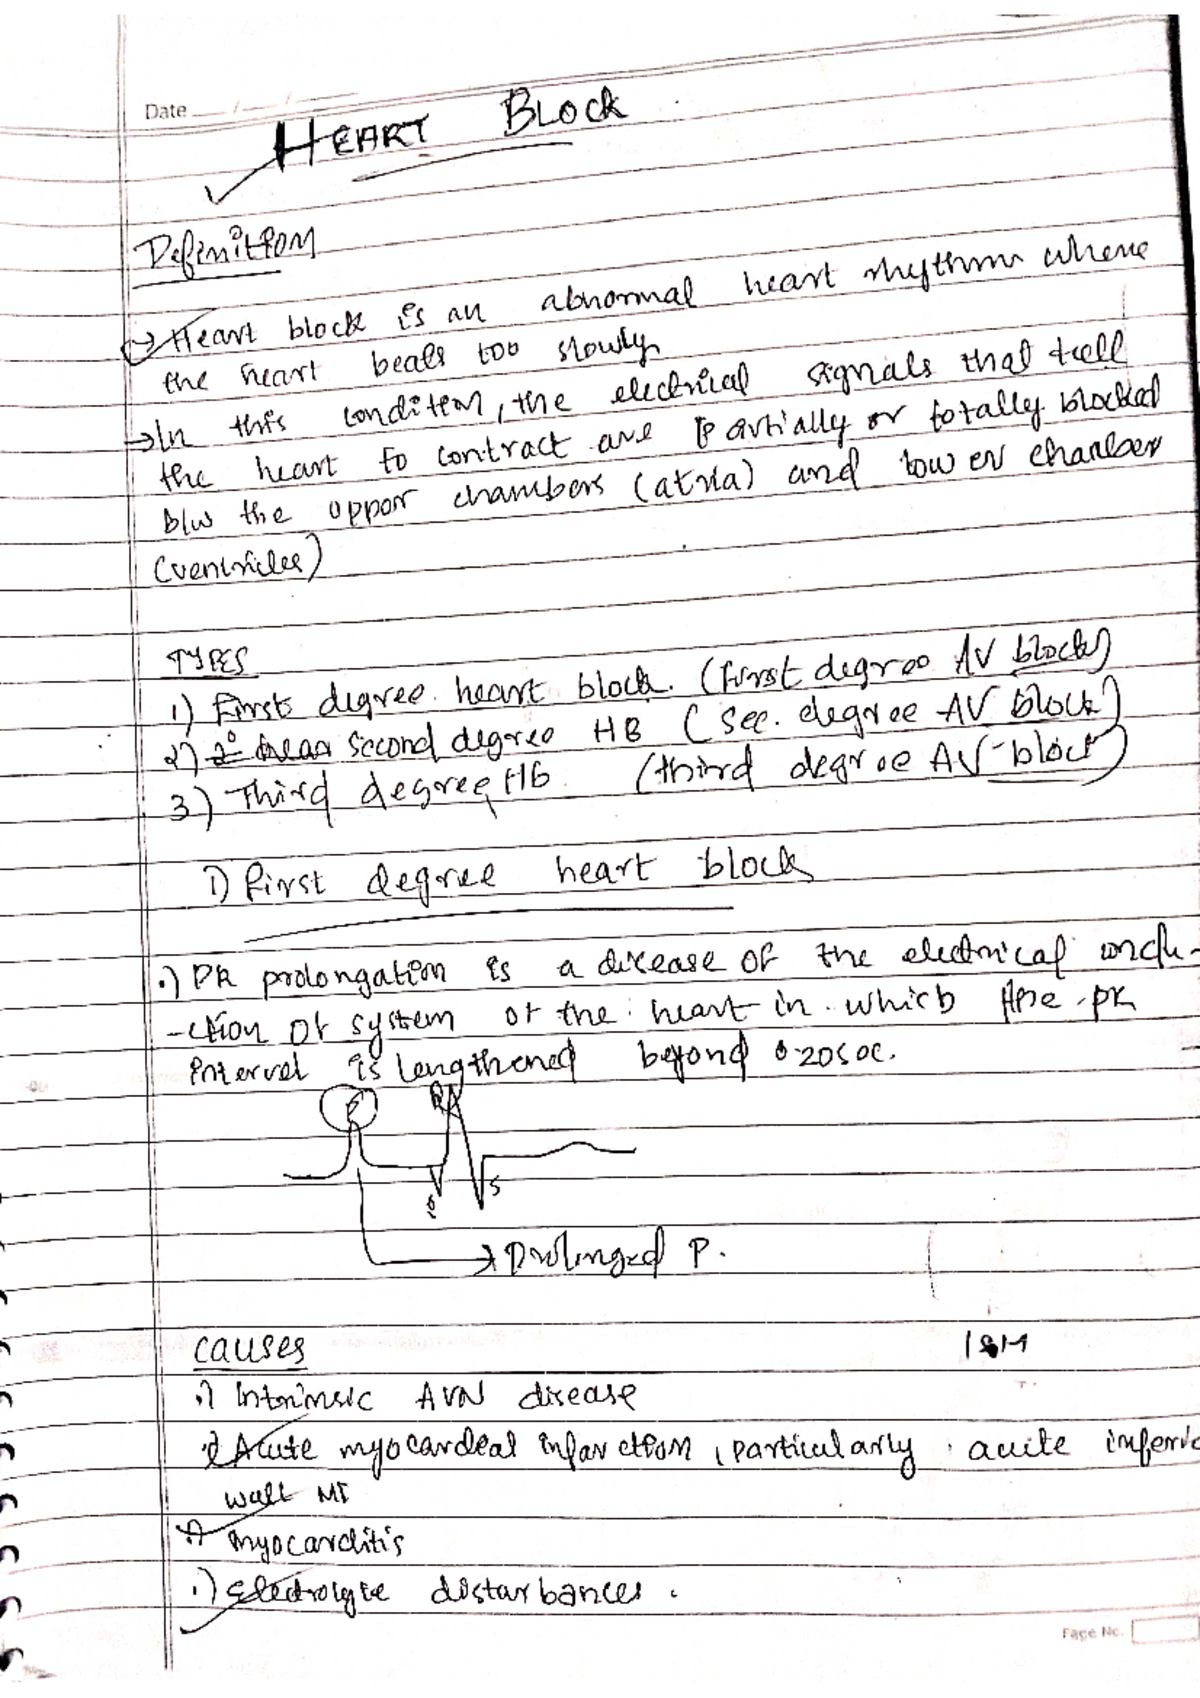 Date
HEART Block
Definition
→ Heart block is an abnormal heart rhythm where
the heart beats too slowly
→ In this condition, the electrical signals that tell
the heart to contract are partially or totally blocked
b/w the oppor chambers (atria) and lower chamber
(ventricles)
TYPES
1) First degree heart block. (First degree AV block)
2) second degree HB (sec. degree AV block)
3) Third degree HB (third degree AV-block)
1) First degree heart block
.) PR prolongation is a disease of the electrical condu-
-ction of system of the heart in which the PR
interval is lengthened beyond 0.20 sec.
P
R
S
→ Prolonged P.
CAUSES
.) Intrinsic AVN disease
.) Acute myocardeal infarction, particularly acute inferio
wall MI
.) myocarditis
.) Electrolyte disturbances.
Page No.